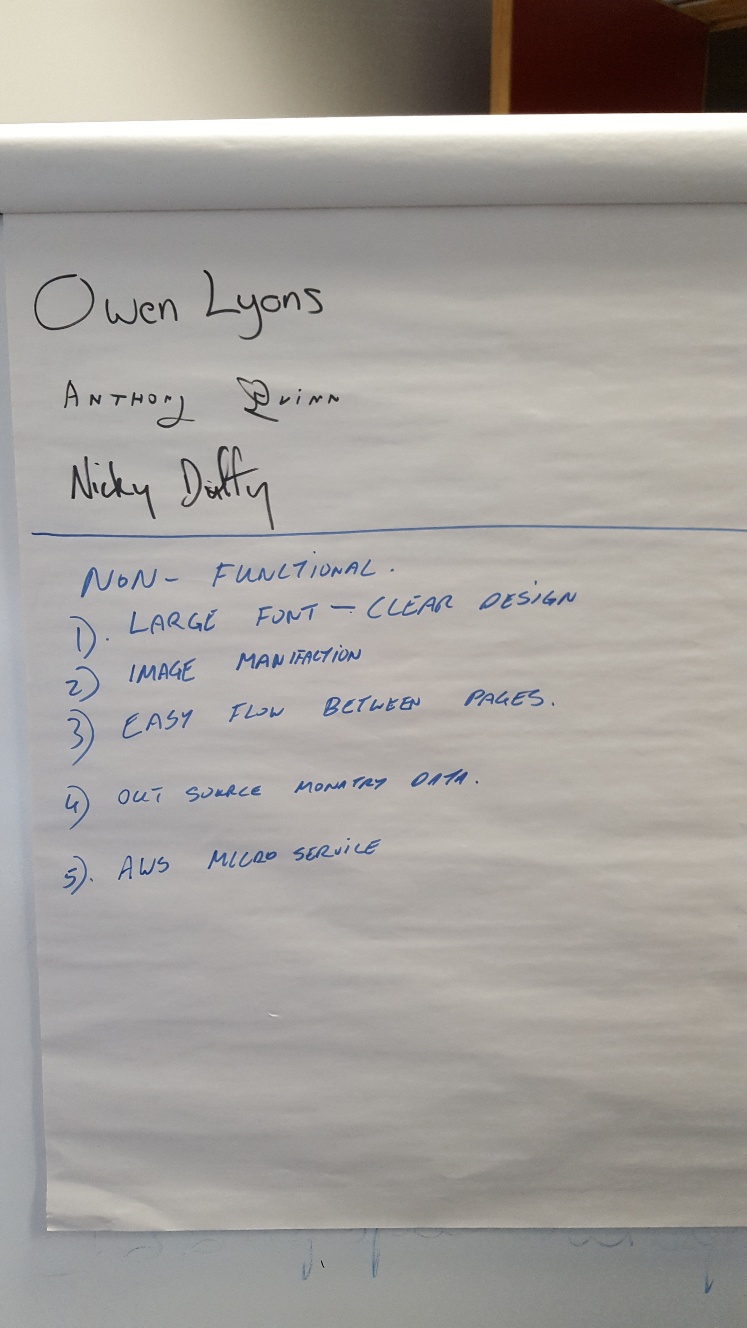 Owen Lyons
ANTHONY QUINN
Nicky Duffy
NON- FUNCTIONAL.
1). LARGE FONT - CLEAR DESIGN
2) IMAGE MANIFACTION
3) EASY FLOW BETWEEN PAGES.
4) OUT SOURCE MONATRY DATA.
5). AWS MICRO SERVICE